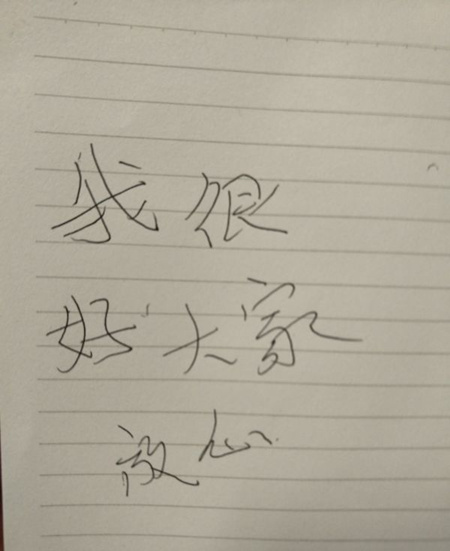 我很
好大家
放心